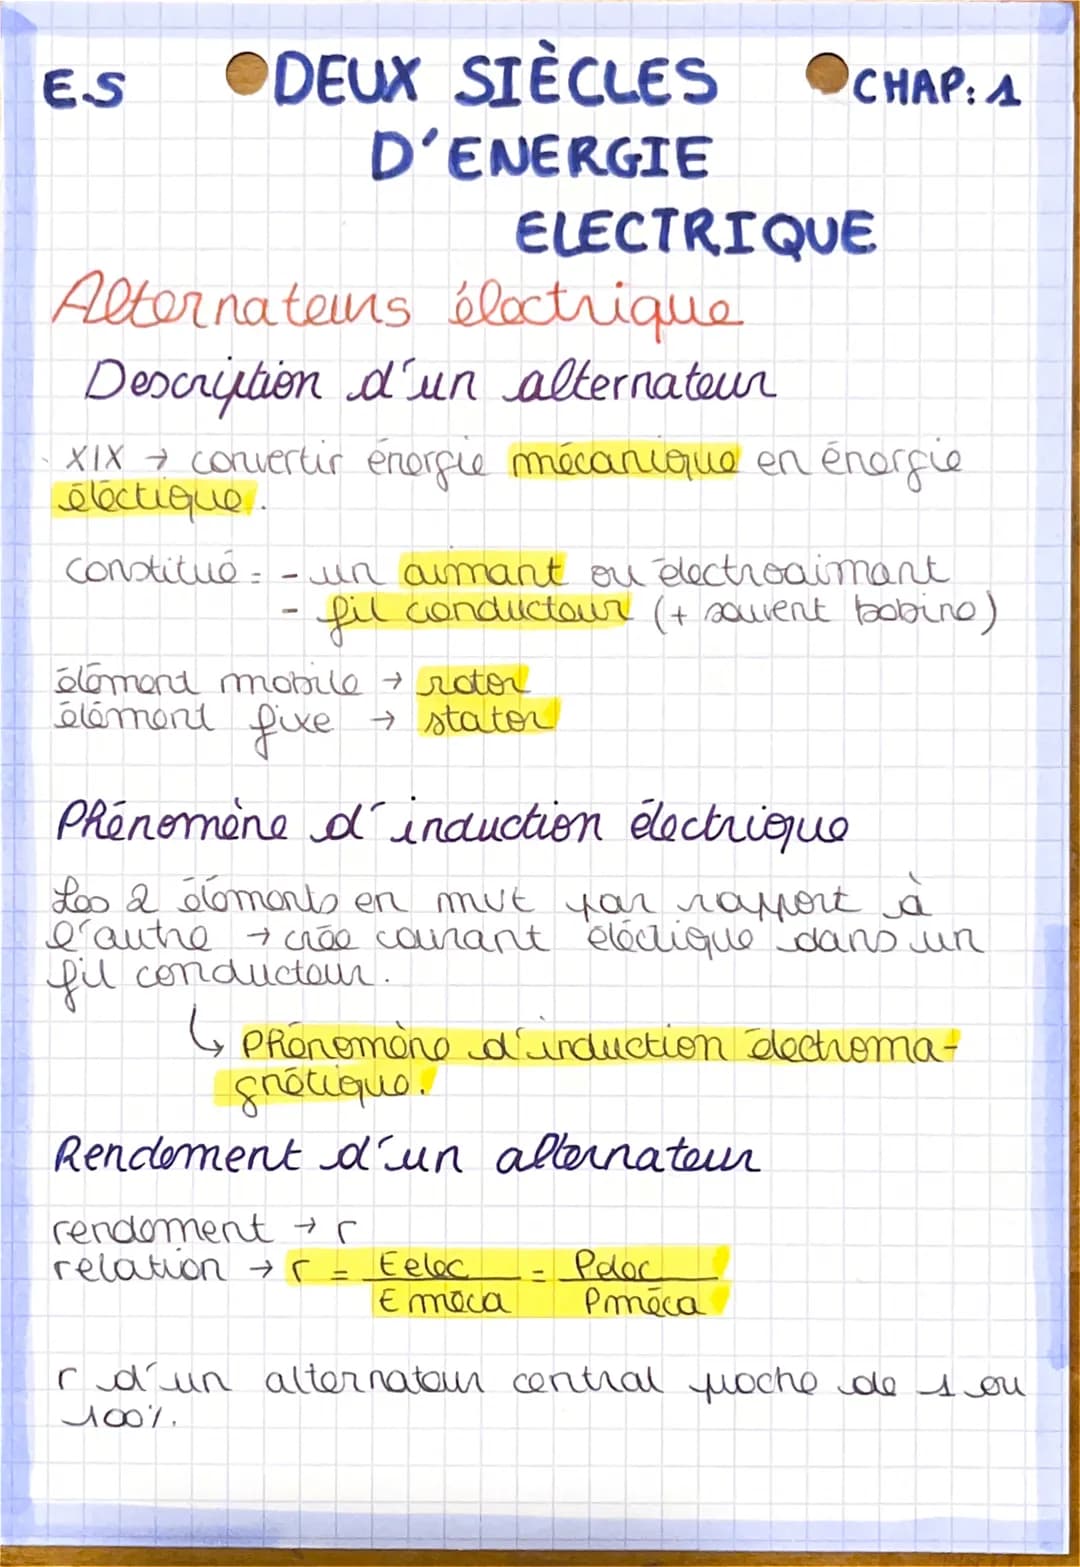 E.S DEUX SIÈCLES CHAP: 1
D'ENERGIE
ELECTRIQUE
Alternateurs électrique
Description d'un alternateur
XIX → convertir énergie mécanique en énergie
électique.
constitué = - un aimant ou électroaimant
- fil conducteur (+ souvent bobine)
élément mobile → rotor
élément fixe → stator
Phénomène d'induction électrique
Les 2 éléments en mvt par rapport à
l'autre → crée courant électrique dans un
fil conducteur.
↳ Phénomène d'induction électroma-
gnétique.
Rendement d'un alternateur
rendement → r
relation → r = Eelec = Pelec
Eméca Pméca
r d'un alternateur central proche de 1 ou
100%.